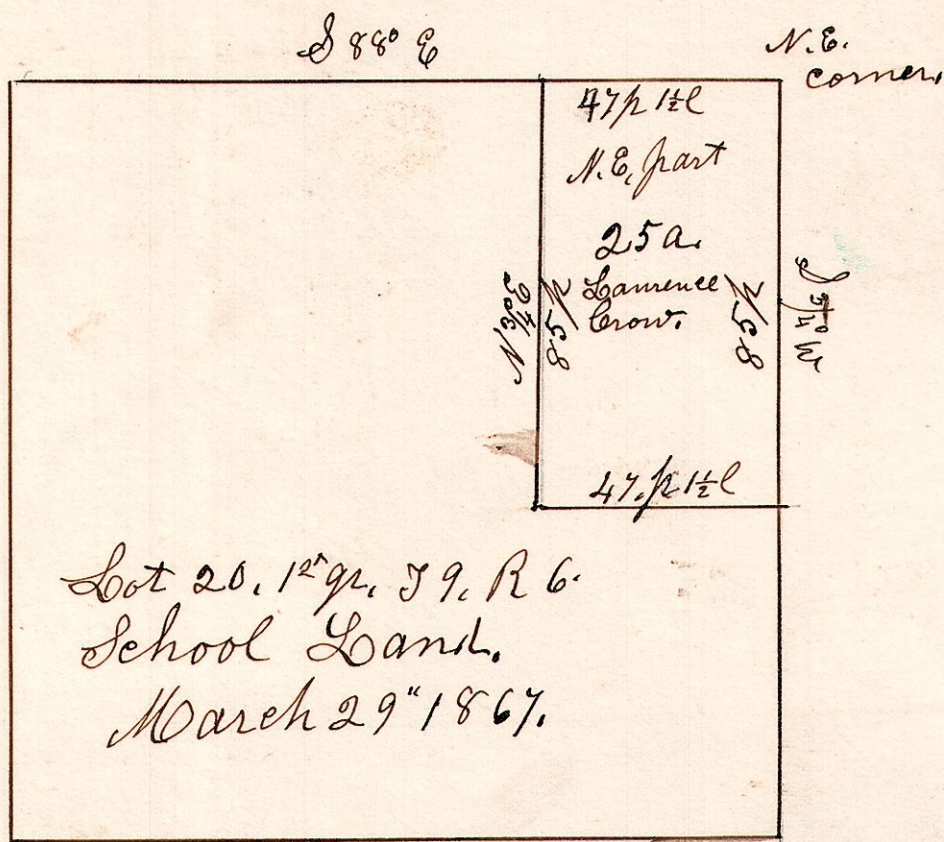 S 88° E
N.E.
corner.
47p 1½l
N.E. part
25a.
Lawrence
Crow.
85p
85p
47.p 1½l
Lot 20. 1st qr. T 9. R 6.
School Land.
March 29" 1867.